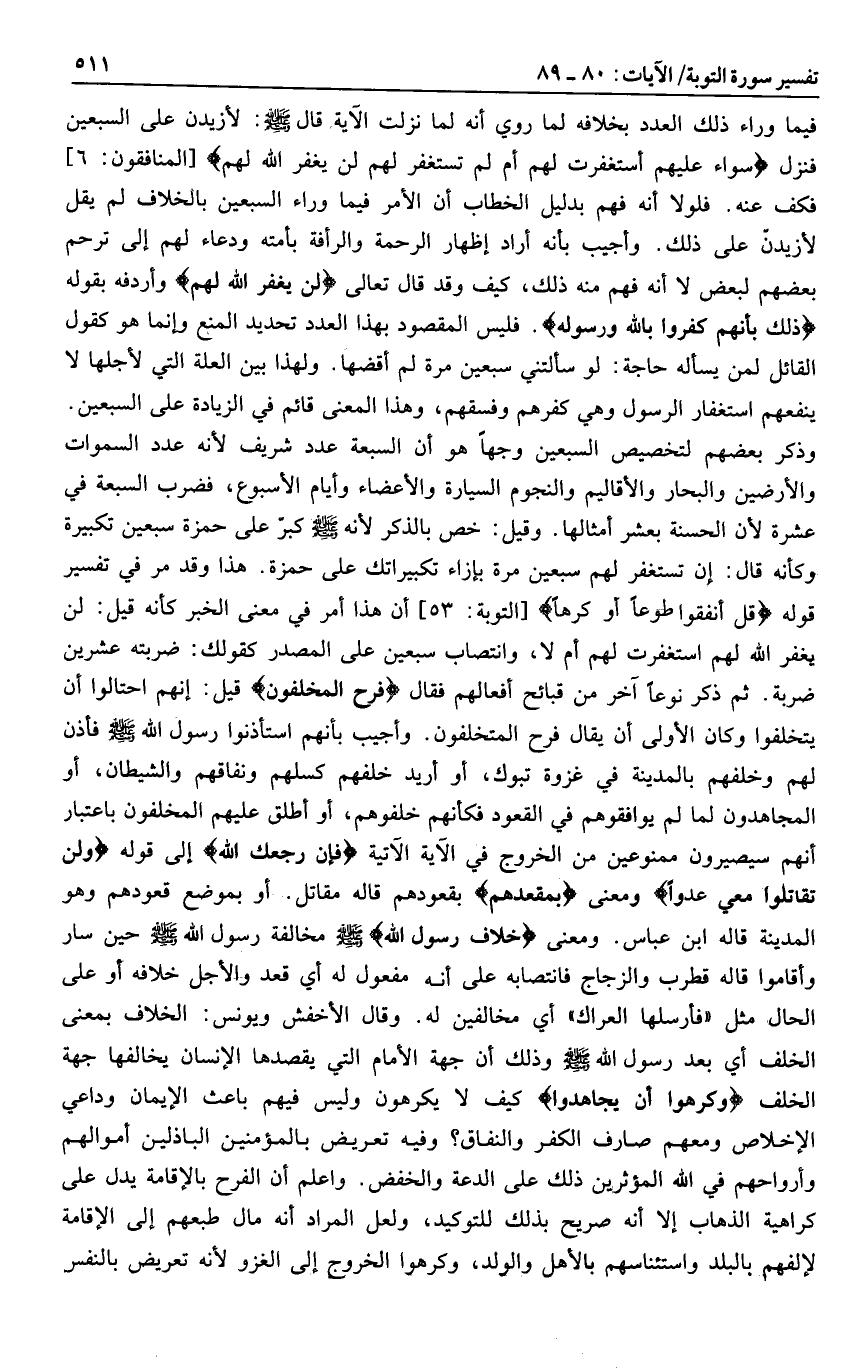 تفسير سورة التوبة/ الآيات: ٨٠ - ٨٩
٥١١
فيما وراء ذلك العدد بخلافه لما روي أنه لما نزلت الآية قال ﷺ: لأزيدن على السبعين
فنزل ﴿سواء عليهم أستغفرت لهم أم لم تستغفر لهم لن يغفر الله لهم﴾ [المنافقون: ٦]
فكف عنه. فلولا أنه فهم بدليل الخطاب أن الأمر فيما وراء السبعين بالخلاف لم يقل
لأزيدنّ على ذلك. وأجيب بأنه أراد إظهار الرحمة والرأفة بأمته ودعاء لهم إلى ترحم
بعضهم لبعض لا أنه فهم منه ذلك، كيف وقد قال تعالى ﴿لن يغفر الله لهم﴾ وأردفه بقوله
﴿ذلك بأنهم كفروا بالله ورسوله﴾. فليس المقصود بهذا العدد تحديد المنع وإنما هو كقول
القائل لمن يسأله حاجة: لو سألتني سبعين مرة لم أقضها. ولهذا بين العلة التي لأجلها لا
ينفعهم استغفار الرسول وهي كفرهم وفسقهم، وهذا المعنى قائم في الزيادة على السبعين.
وذكر بعضهم لتخصيص السبعين وجهاً هو أن السبعة عدد شريف لأنه عدد السموات
والأرضين والبحار والأقاليم والنجوم السيارة والأعضاء وأيام الأسبوع، فضرب السبعة في
عشرة لأن الحسنة بعشر أمثالها. وقيل: خص بالذكر لأنه ﷺ كبرّ على حمزة سبعين تكبيرة
وكأنه قال: إن تستغفر لهم سبعين مرة بإزاء تكبيراتك على حمزة. هذا وقد مر في تفسير
قوله ﴿قل أنفقوا طوعاً أو كرهاً﴾ [التوبة: ٥٣] أن هذا أمر في معنى الخبر كأنه قيل: لن
يغفر الله لهم استغفرت لهم أم لا، وانتصاب سبعين على المصدر كقولك: ضربته عشرين
ضربة. ثم ذكر نوعاً آخر من قبائح أفعالهم فقال ﴿فرح المخلفون﴾ قيل: إنهم احتالوا أن
يتخلفوا وكان الأولى أن يقال فرح المتخلفون. وأجيب بأنهم استأذنوا رسول الله ﷺ فأذن
لهم وخلفهم بالمدينة في غزوة تبوك، أو أريد خلفهم كسلهم ونفاقهم والشيطان، أو
المجاهدون لما لم يوافقوهم في القعود فكأنهم خلفوهم، أو أطلق عليهم المخلفون باعتبار
أنهم سيصيرون ممنوعين من الخروج في الآية الآتية ﴿فإن رجعك الله﴾ إلى قوله ﴿ولن
تقاتلوا معي عدواً﴾ ومعنى ﴿بمقعدهم﴾ بقعودهم قاله مقاتل. أو بموضع قعودهم وهو
المدينة قاله ابن عباس. ومعنى ﴿خلاف رسول الله﴾ ﷺ مخالفة رسول الله ﷺ حين سار
وأقاموا قاله قطرب والزجاج فانتصابه على أنه مفعول له أي قعد والأجل خلافه أو على
الحال مثل «فأرسلها العراك» أي مخالفين له. وقال الأخفش ويونس: الخلاف بمعنى
الخلف أي بعد رسول الله ﷺ وذلك أن جهة الأمام التي يقصدها الإنسان يخالفها جهة
الخلف ﴿وكرهوا أن يجاهدوا﴾ كيف لا يكرهون وليس فيهم باعث الإيمان وداعي
الإخلاص ومعهم صارف الكفر والنفاق؟ وفيه تعريض بالمؤمنين الباذلين أموالهم
وأرواحهم في الله المؤثرين ذلك على الدعة والخفض. واعلم أن الفرح بالإقامة يدل على
كراهية الذهاب إلا أنه صريح بذلك للتوكيد، ولعل المراد أنه مال طبعهم إلى الإقامة
لإلفهم بالبلد واستئناسهم بالأهل والولد، وكرهوا الخروج إلى الغزو لأنه تعريض بالنفس